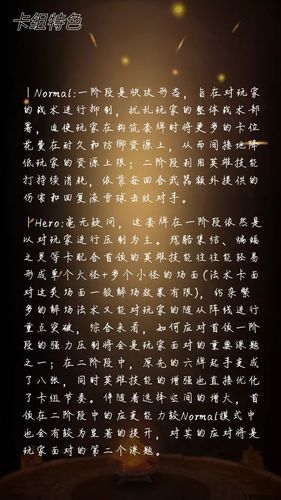 卡组特色
|Normal:一阶段是快攻形态，旨在对玩家
的战术进行抑制，扰乱玩家的整体战术部
署，迫使玩家在构筑套牌时将更多的卡位
花费在耐久和防御资源上，从而间接地降
低玩家的资源上限；二阶段利用英雄技能
打持续消耗，依靠每回合武器额外提供的
伤害和回复滚雪球击败对手。
|Hero:毫无疑问，这套牌在一阶段依然是
以对玩家进行压制为主。残酷集结、蝙蝠
之灵等卡配合首领的英雄技能往往能轻易
形成单个大怪+多个小怪的场面(法术卡面
对这类场面一般解场效果有限)，纷杂繁
多的解场法术又能对玩家的随从阵线进行
重点突破，综合来看，如何应对首领一阶
段的强力压制将会是玩家面对的重要课题
之一；在二阶段中，原先的六牌起手变成
了八张，同时英雄技能的增强也直接优化
了卡组节奏。伴随着选择空间的增大，首
领在二阶段中的应变能力较Normal模式中
也会有较为显著的提升，对其的应对将是
玩家面对的第二个课题。